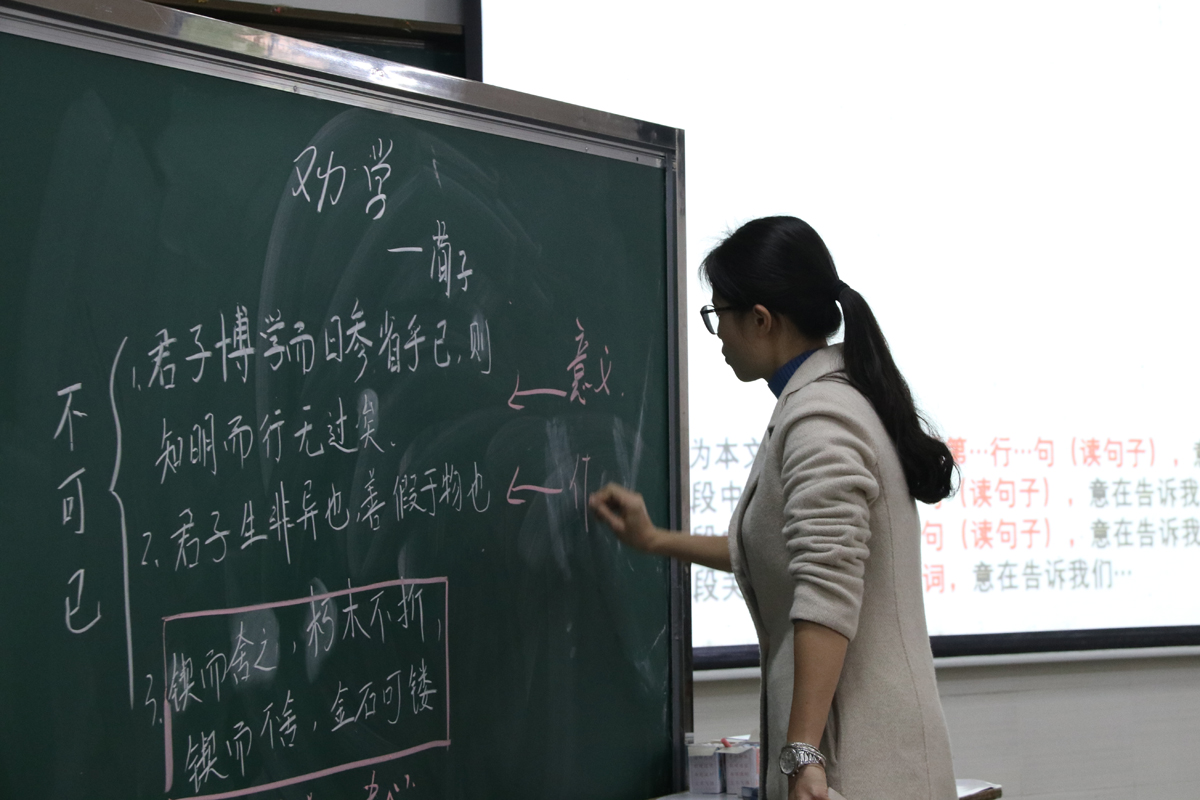 劝学
一荀子
不可已
1.君子博学而日参省乎己,则
知明而行无过矣.
2.君子生非异也,善假于物也
3.锲而舍之,朽木不折,
锲而不舍,金石可镂
意义.
作
为本文 第…行…句（读句子），意
段中 （读句子），意在告诉我
句（读句子），意在告诉我
段 词，意在告诉我们…